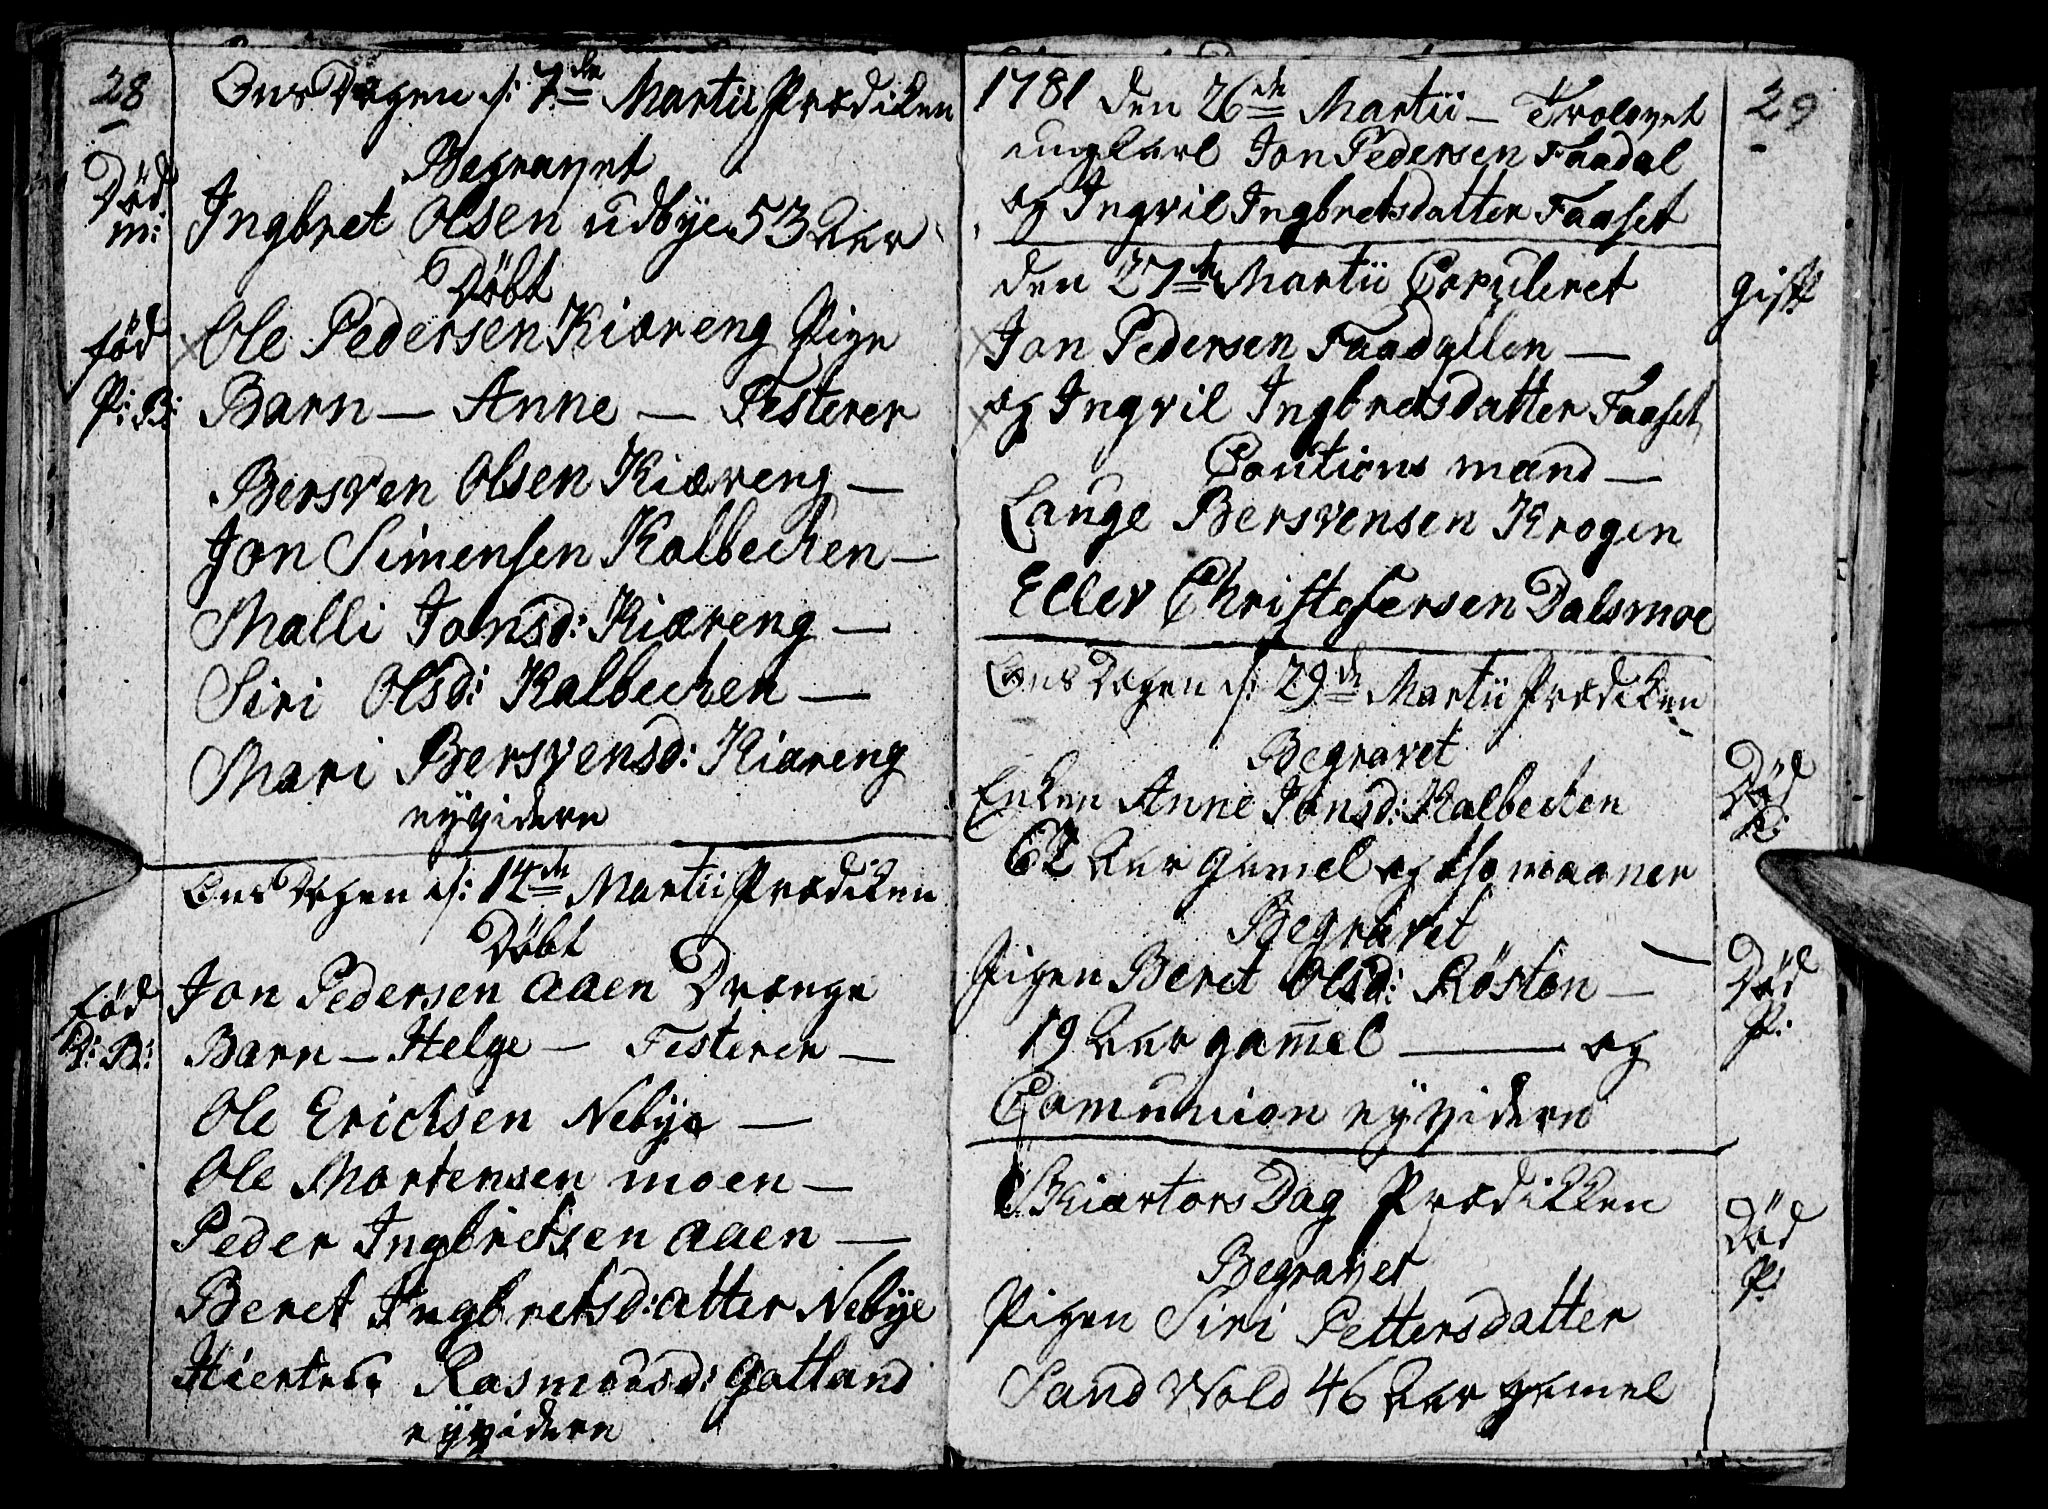 28
Ons Dagen d: 7de Martii Prædiken
Begravet
Død
m:
Ingbret Olsen udbye 53 Aar
Døbt
fød
P: B:
Ole Pedersen Kiæreng Pige
Barn — Anne — Festerer
Bersven Olsen Kiæreng —
Jon Simensen Kalbecken —
Malli Jonsd: Kiæreng —
Siri Olsd: Kalbecken —
Mari Bersvensd: Kiæreng
Ons Dagen d: 14de Martii Prædiken
Døbt
fød
D: B:
Jon Pedersen Aaen Drænge
Barn — Helge — Festerer —
Ole Ericksen Nebye —
Ole Mortensen moen —
Peder Ingbretsen Aaen —
Beret Ingbretsd:atter Nebye
Rasmusd: Gotland
1781 den 26de Martii — Trolovet
29
ungkarl Jon Pedersen Faadal
og Ingvil Ingbretsdatter Faaset
den 27de Martii Copuleret
gift
Jon Pedersen Faadallen —
og Ingvil Ingbretsdatter Faaset
Cautions mænd —
Lauge Bersvensen Krogen
Eller Christofersen Dalsmoe
Ons Dagen d: 29de Martii Prædiken
Begravet
Død
K:
Enken Anne Jonsd: Kalbecken
62 Aar gamel og maaner
Begravet
Død
P:
Pigen Beret Olsd: Røston —
19 Aar gam̄el — og
Comunion
Skiærtors Dag Prædikken
Begravet
Død
P:
Pigen Siri Pettersdatter
Sand Wold 46 Aar gamel